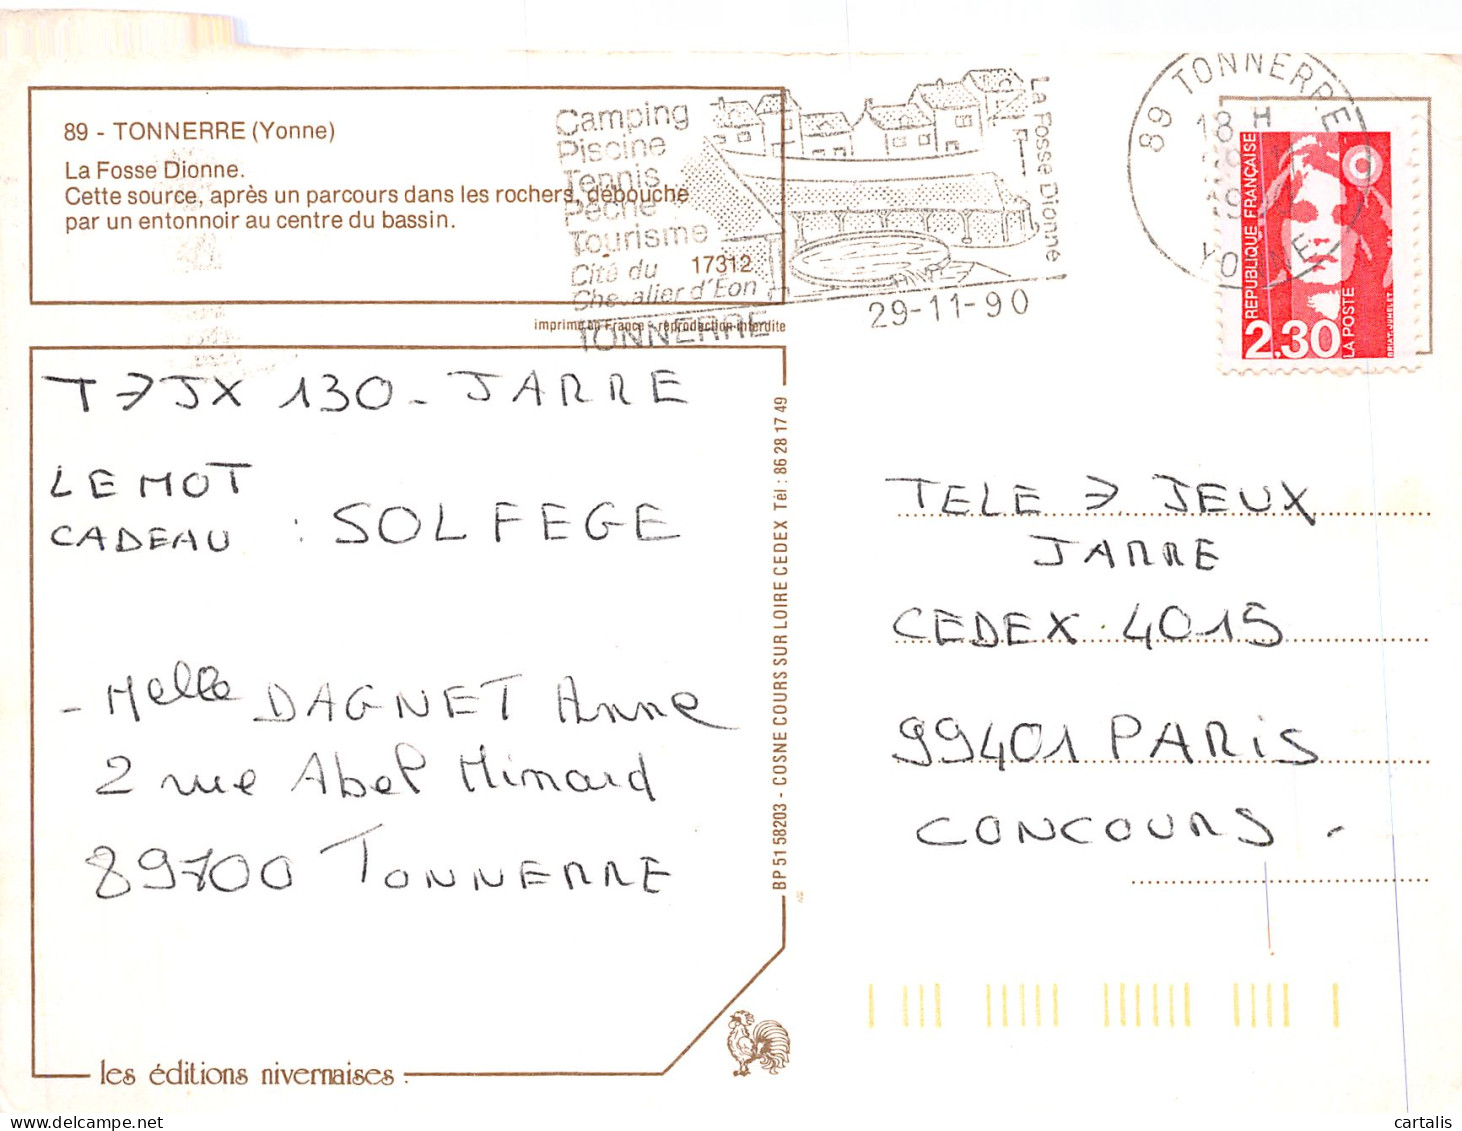 89 - TONNERRE (Yonne)
La Fosse Dionne.
Cette source, après un parcours dans les rochers, débouche
par un entonnoir au centre du bassin.
17312
imprimé en France - reproduction interdite
Camping
Piscine
Tennis
Pêche
Tourisme
Cité du
Chevalier d'Eon
TONNERRE
La Fosse Dionne
29-11-90
89 TONNERRE
18 H
YONNE
REPUBLIQUE FRANÇAISE
2,30
LA POSTE
BRIAT-JUMELET
T 7 JX 130 - JARRE
LE MOT
CADEAU : SOLFEGE
- Melle DAGNET Anne
2 rue Abel Minard
89700 TONNERRE
BP 51 58203 - COSNE COURS SUR LOIRE CEDEX Tél : 86 28 17 49
TELE 7 JEUX
JARRE
CEDEX 4015
99401 PARIS
CONCOURS -
les éditions nivernaises
cartalis